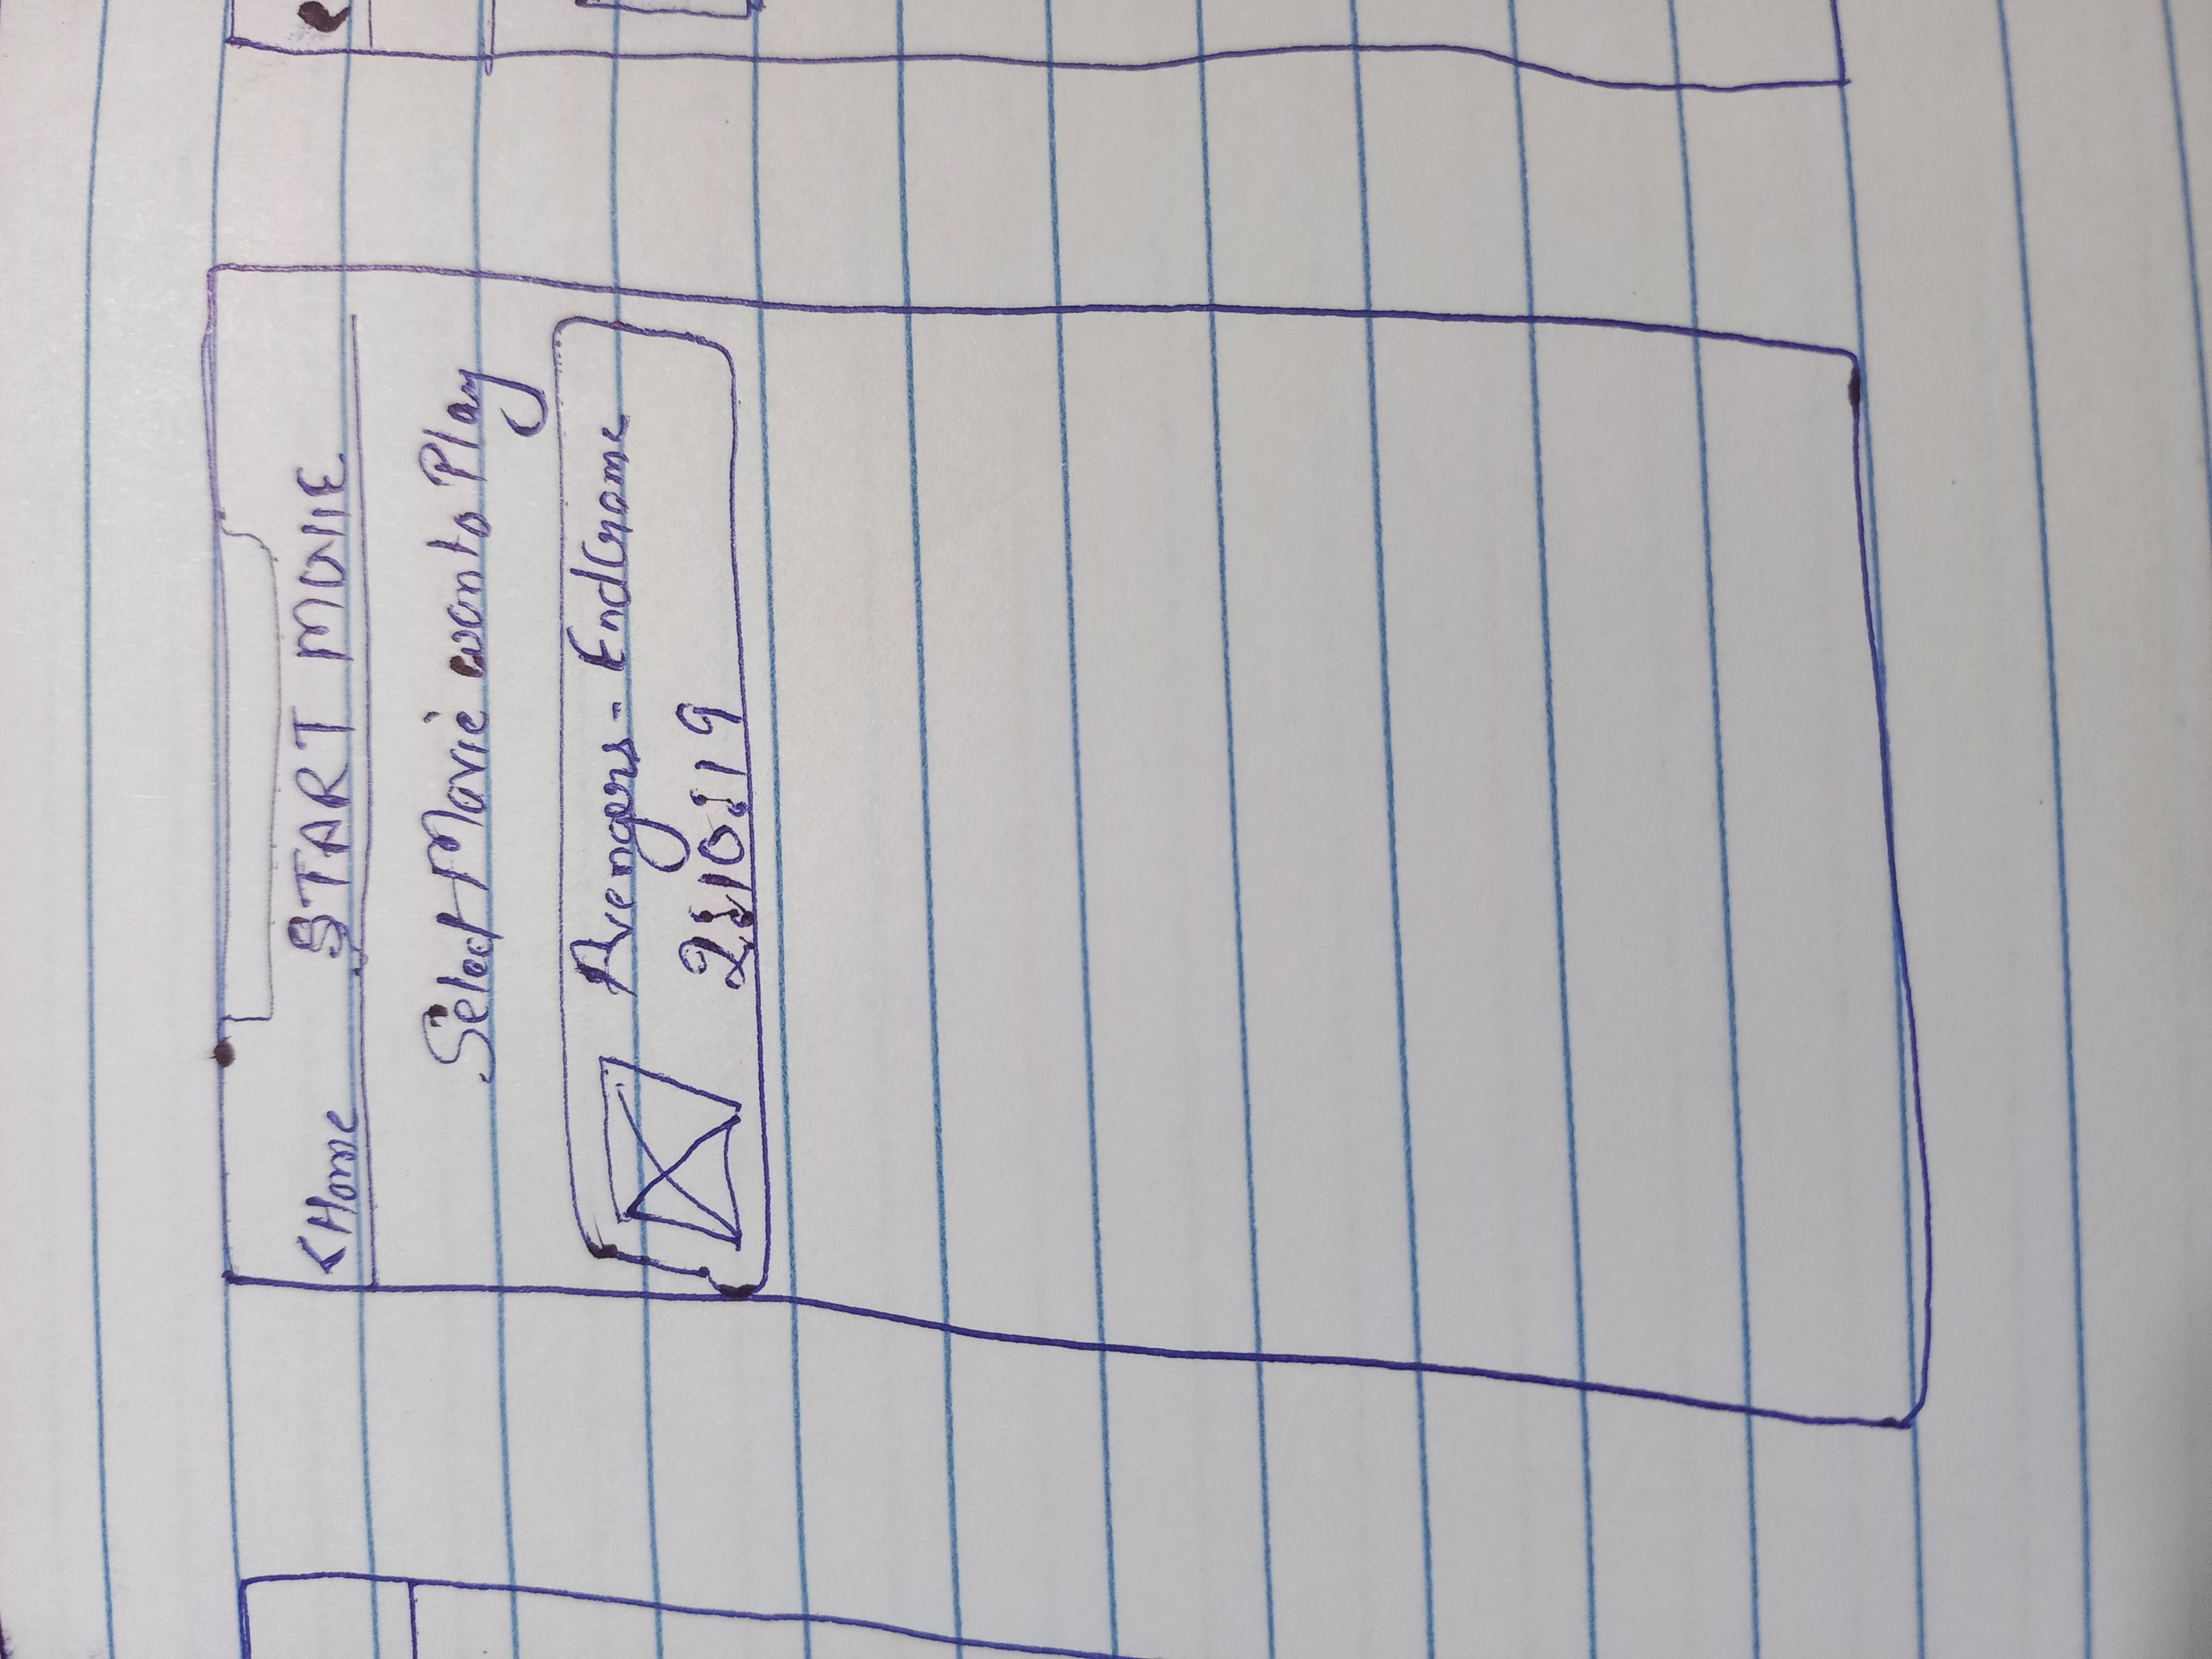 <Home START MOVIE
Select Movie wan to Play
Avengers - EndGame
2:10:19